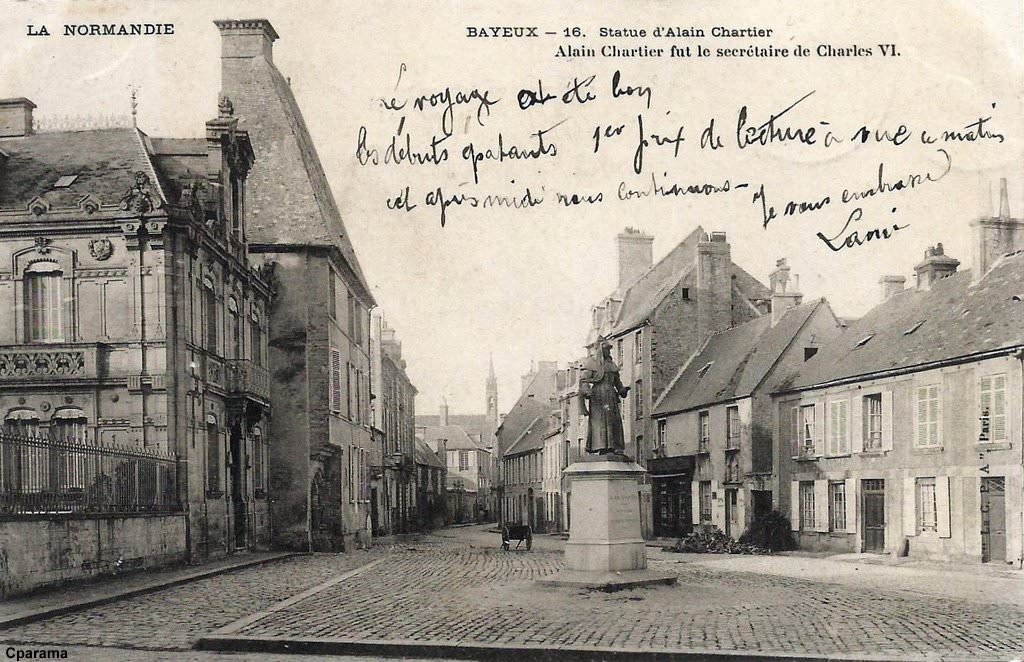 LA NORMANDIE
BAYEUX – 16. Statue d'Alain Chartier
Alain Chartier fut le secrétaire de Charles VI.
Le voyage a été bon
les débuts épatants 1er prix de lecture à vue ce matin
cet après midi nous continuons – Je vous embrasse
"A" Paris.
Cparama